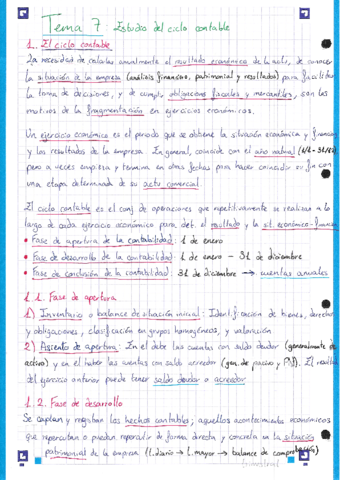 Tema 7: Estudio del ciclo contable
1. El ciclo contable
La necesidad de calcular anualmente el resultado económico de la act., de conocer
la situación de la empresa (análisis financiero, patrimonial y resultados) para facilitar
la toma de decisiones, y de cumplir obligaciones fiscales y mercantiles, son los
motivos de la fragmentación en ejercicios económicos.
Un ejercicio económico es el periodo que se obtiene la situación económica y financiera
y los resultados de la empresa. En general, coincide con el año natural (1/1 - 31/12)
pero a veces empieza y termina en otras fechas para hacer coincidir su fin con
una etapa determinada de su actv comercial.
El ciclo contable es el conj. de operaciones que repetitivamente se realizan a lo
largo de cada ejercicio económico para det. el resultado y la sit. económico-financ
• Fase de apertura de la contabilidad: 1 de enero
• Fase de desarrollo de la contabilidad: 1 de enero - 31 de diciembre
• Fase de conclusión de la contabilidad: 31 de diciembre → cuentas anuales
1.1. Fase de apertura
1) Inventario o balance de situación inicial: Identificación de bienes, derechos
y obligaciones, clasificación en grupos homogéneos, y valoración
2) Asiento de apertura: En el debe las cuentas con saldo deudor (generalmente de
activo) y en el haber las cuentas con saldo acreedor (gen. de pasivo y PN). El resultado
del ejercicio anterior puede tener saldo deudor o acreedor
1.2. Fase de desarrollo
Se captan y registran los hechos contables; aquellos acontecimientos económicos
que repercutan o puedan repercutir de forma directa y concreta en la situación
patrimonial de la empresa (l.diario → l.mayor → balance de comprobación)
trimestral